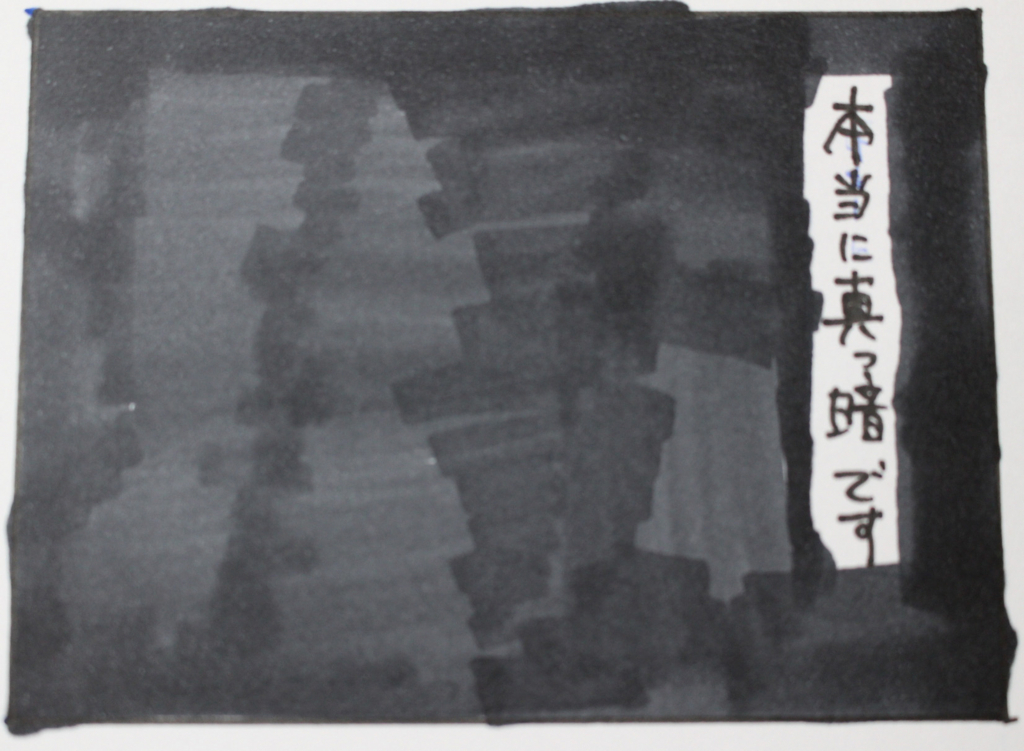 本当に真っ暗です